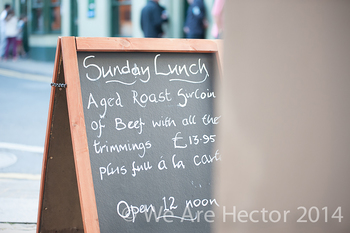 Sunday Lunch
Aged Roast Surloin
of Beef with all the
trimmings £13.95
plus full á la carte
Open 12 noon
We Are Hector 2014